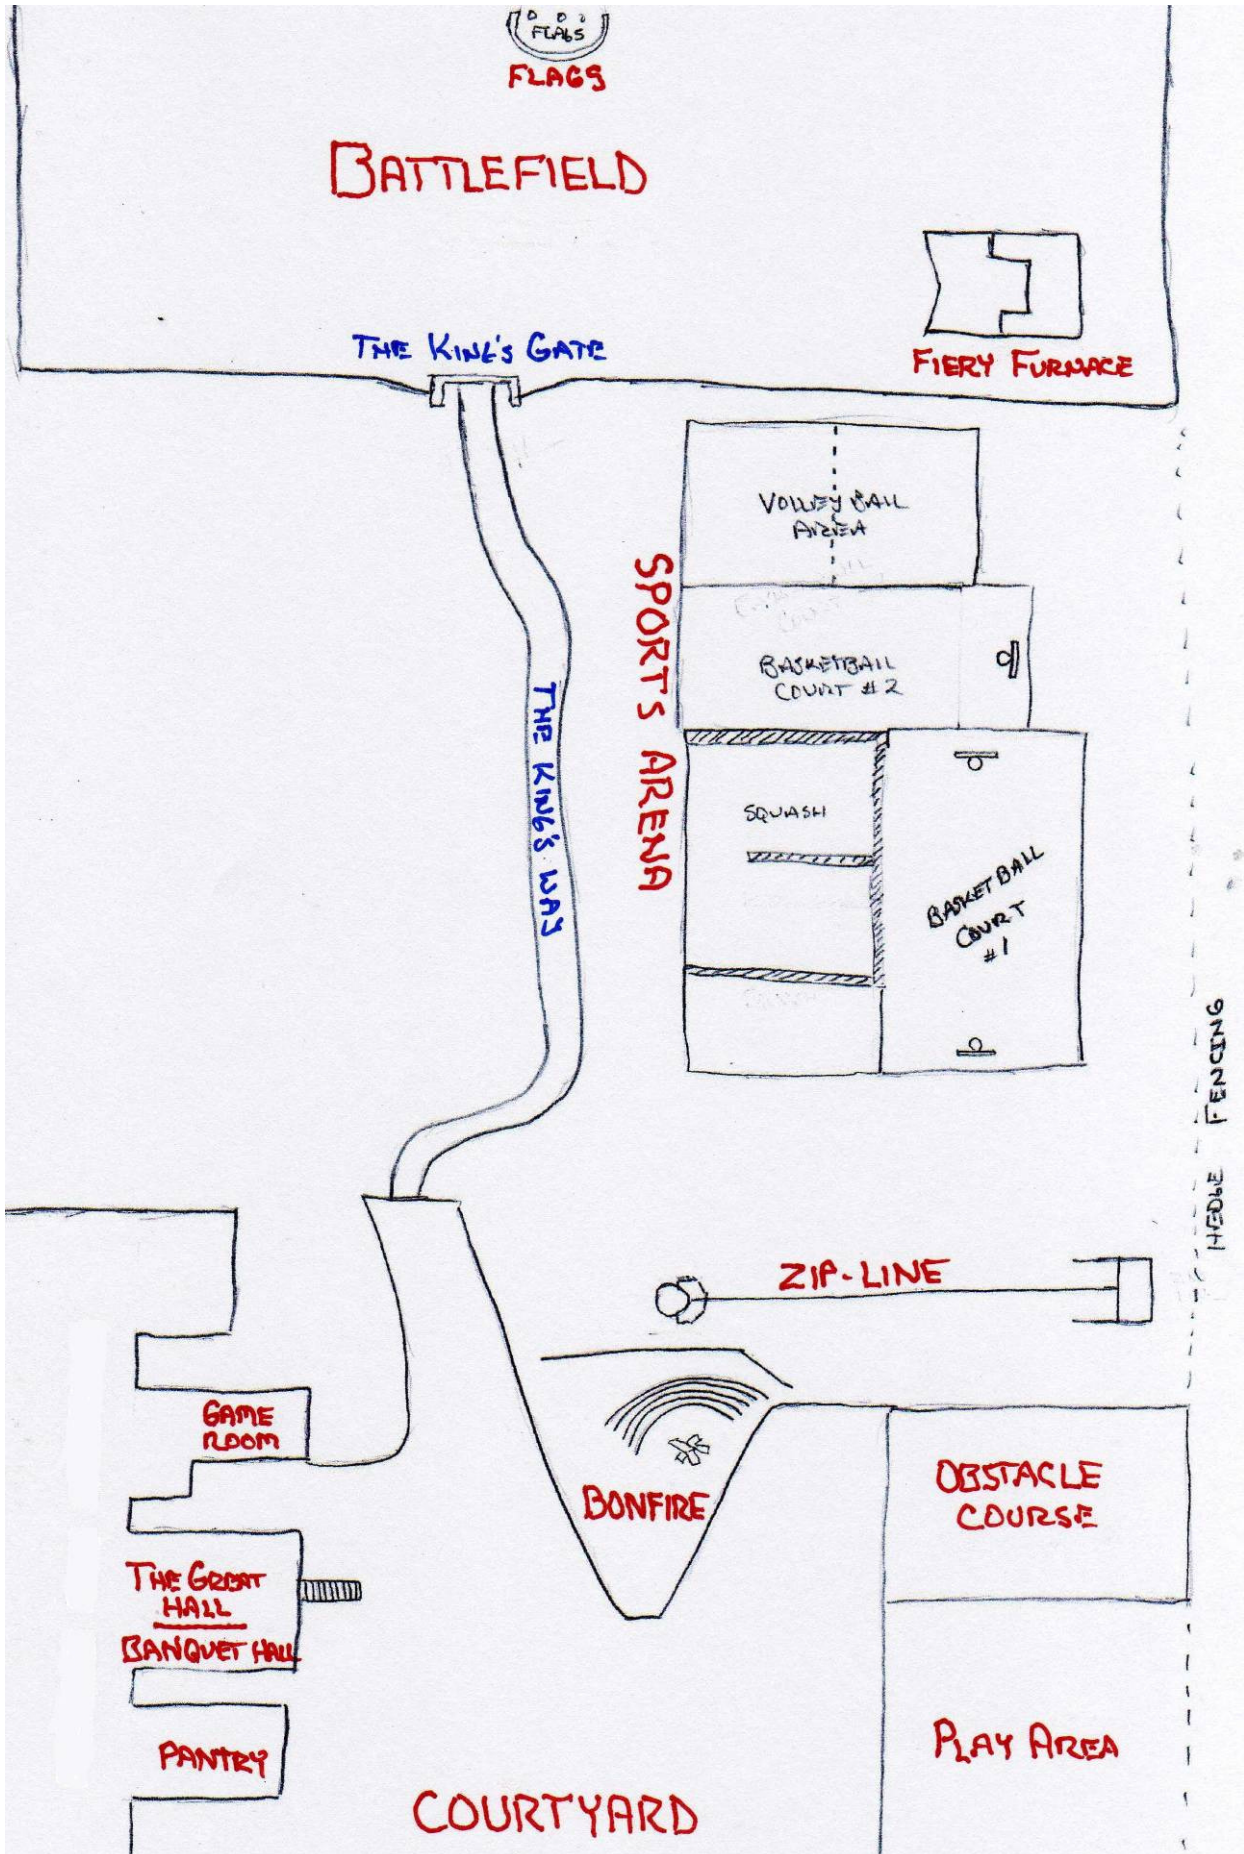 FLAGS
FLAGS
BATTLEFIELD
THE KING'S GATE
FIERY FURNACE
VOLLEY BALL
AREA
SPORTS ARENA
BASKETBALL
COURT #2
THE KING'S WAY
SQUASH
BASKETBALL
COURT
#1
HEDGE FENCING
ZIP-LINE
GAME
ROOM
BONFIRE
OBSTACLE
COURSE
THE GREAT
HALL
BANQUET HALL
PANTRY
PLAY AREA
COURTYARD